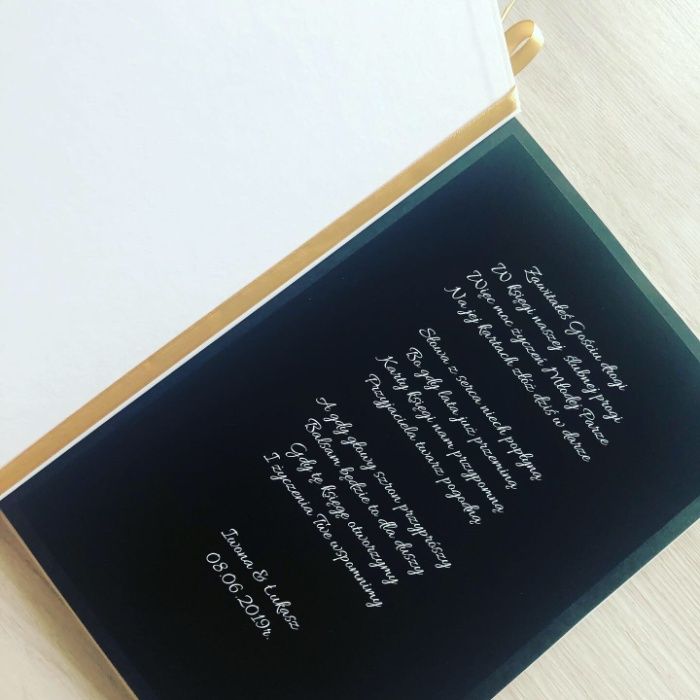 Zawitałeś Gościu drogi
W księgi naszej ślubnej progi
Więc moc życzeń Młodej Parze
Na jej kartach złóż dziś w darze
Słowa z serca niech popłyną
Bo gdy lata już przeminą
Karty księgi nam przypomną
Przyjaciela twarz pogodną
A gdy głowy szron przyprószy
Balsam będzie to dla duszy
Gdy tę księgę otworzymy
I życzenia Twe wspomnimy
Iwona & Łukasz
08.06.2019r.